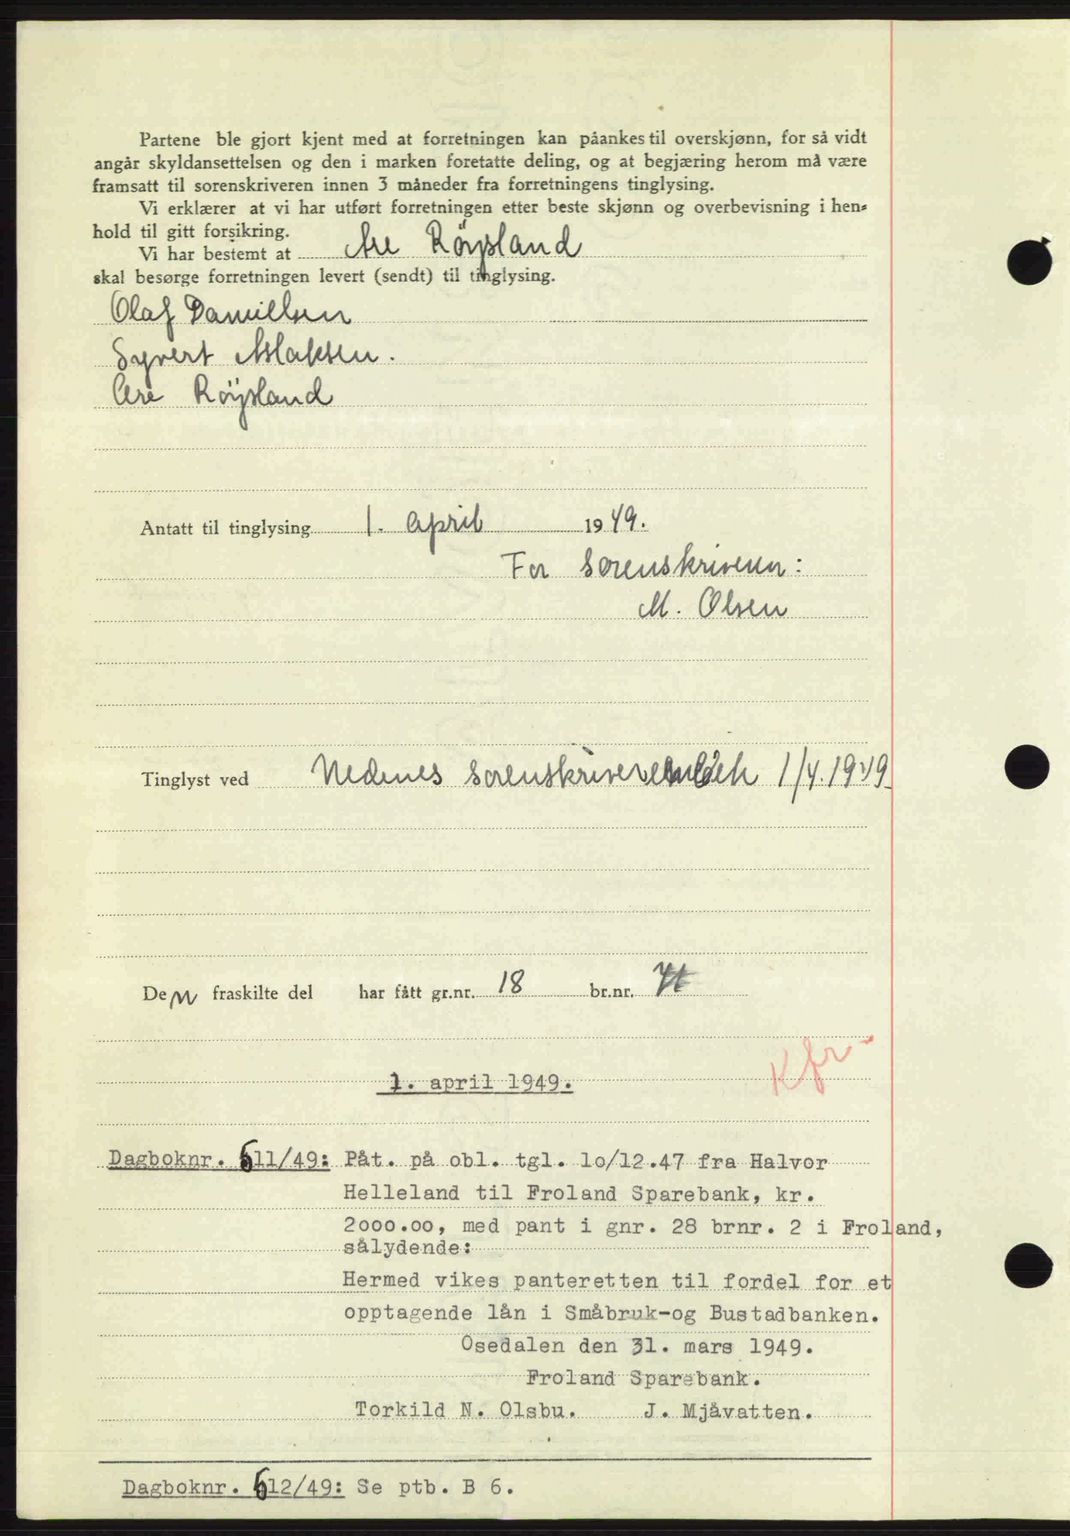 Partene ble gjort kjent med at forretningen kan påankes til overskjønn, for så vidt
angår skyldansettelsen og den i marken foretatte deling, og at begjæring herom må være
framsatt til sorenskriveren innen 3 måneder fra forretningens tinglysing.
Vi erklærer at vi har utført forretningen etter beste skjønn og overbevisning i hen-
hold til gitt forsikring.
Vi har bestemt at Are Röysland
skal besørge forretningen levert (sendt) til tinglysing.
Olaf Danielsen
Syvert Aslaksen.
Are Röysland
Antatt til tinglysing 1. april 1949.
For Sorenskriveren:
M. Olsen
Tinglyst ved Nedenes sorenskriverembete 1/4.1949
Den fraskilte del har fått gr.nr. 18 br.nr.
Kfr
1. april 1949.
Dagboknr. 611/49: Påt. på obl. tgl. 10/12.47 fra Halvor
Helleland til Froland Sparebank, kr.
2000.00, med pant i gnr. 28 brnr. 2 i Froland,
sålydende:
Hermed vikes panteretten til fordel for et
opptagende lån i Småbruk-og Bustadbanken.
Osedalen den 31. mars 1949.
Froland Sparebank.
Torkild N. Olsbu. J. Mjåvatten.
Dagboknr. 612/49: Se ptb. B 6.